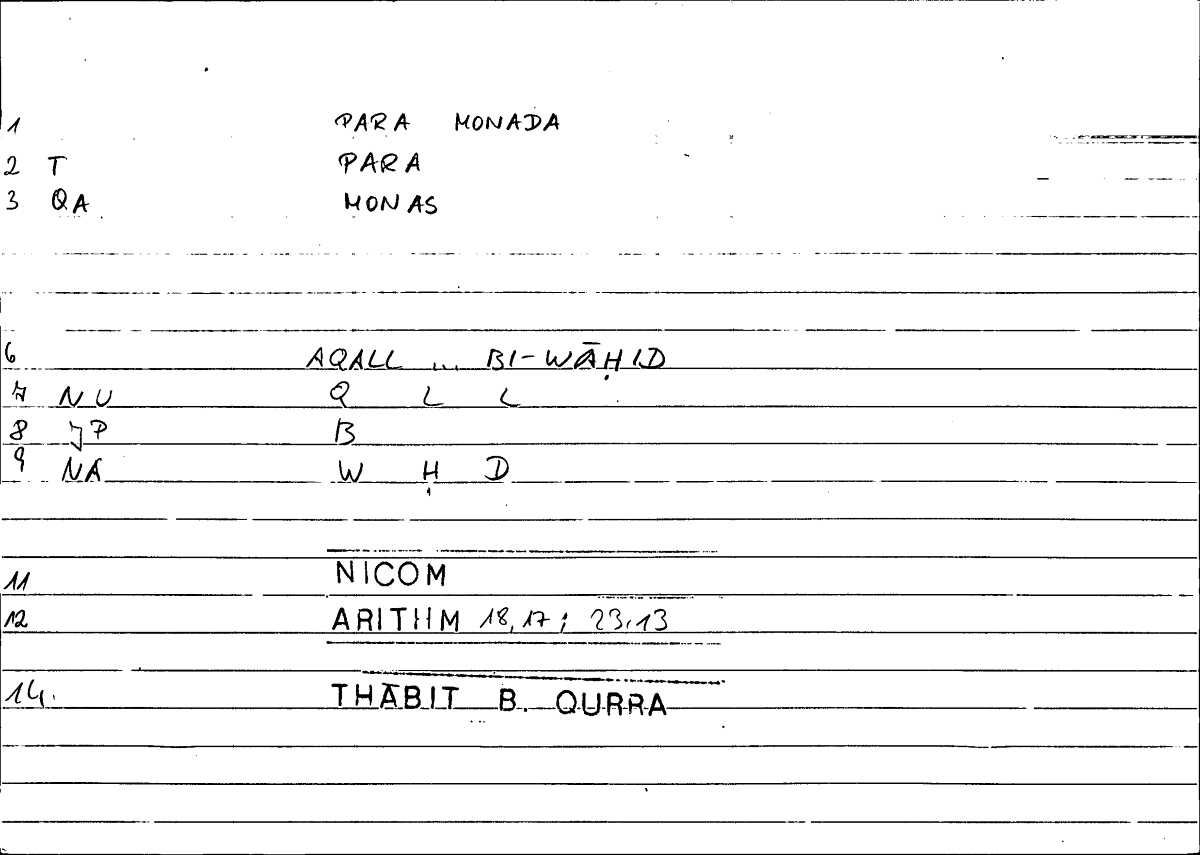 1 PARA MONADA
2 T PARA
3 QA MONAS
6 AQALL ... BI-WĀḤID
7 NU Q L L
8 JP B
9 NA W Ḥ D
11 NICOM
12 ARITHM 18,17; 23,13
14. THĀBIT B. QURRA